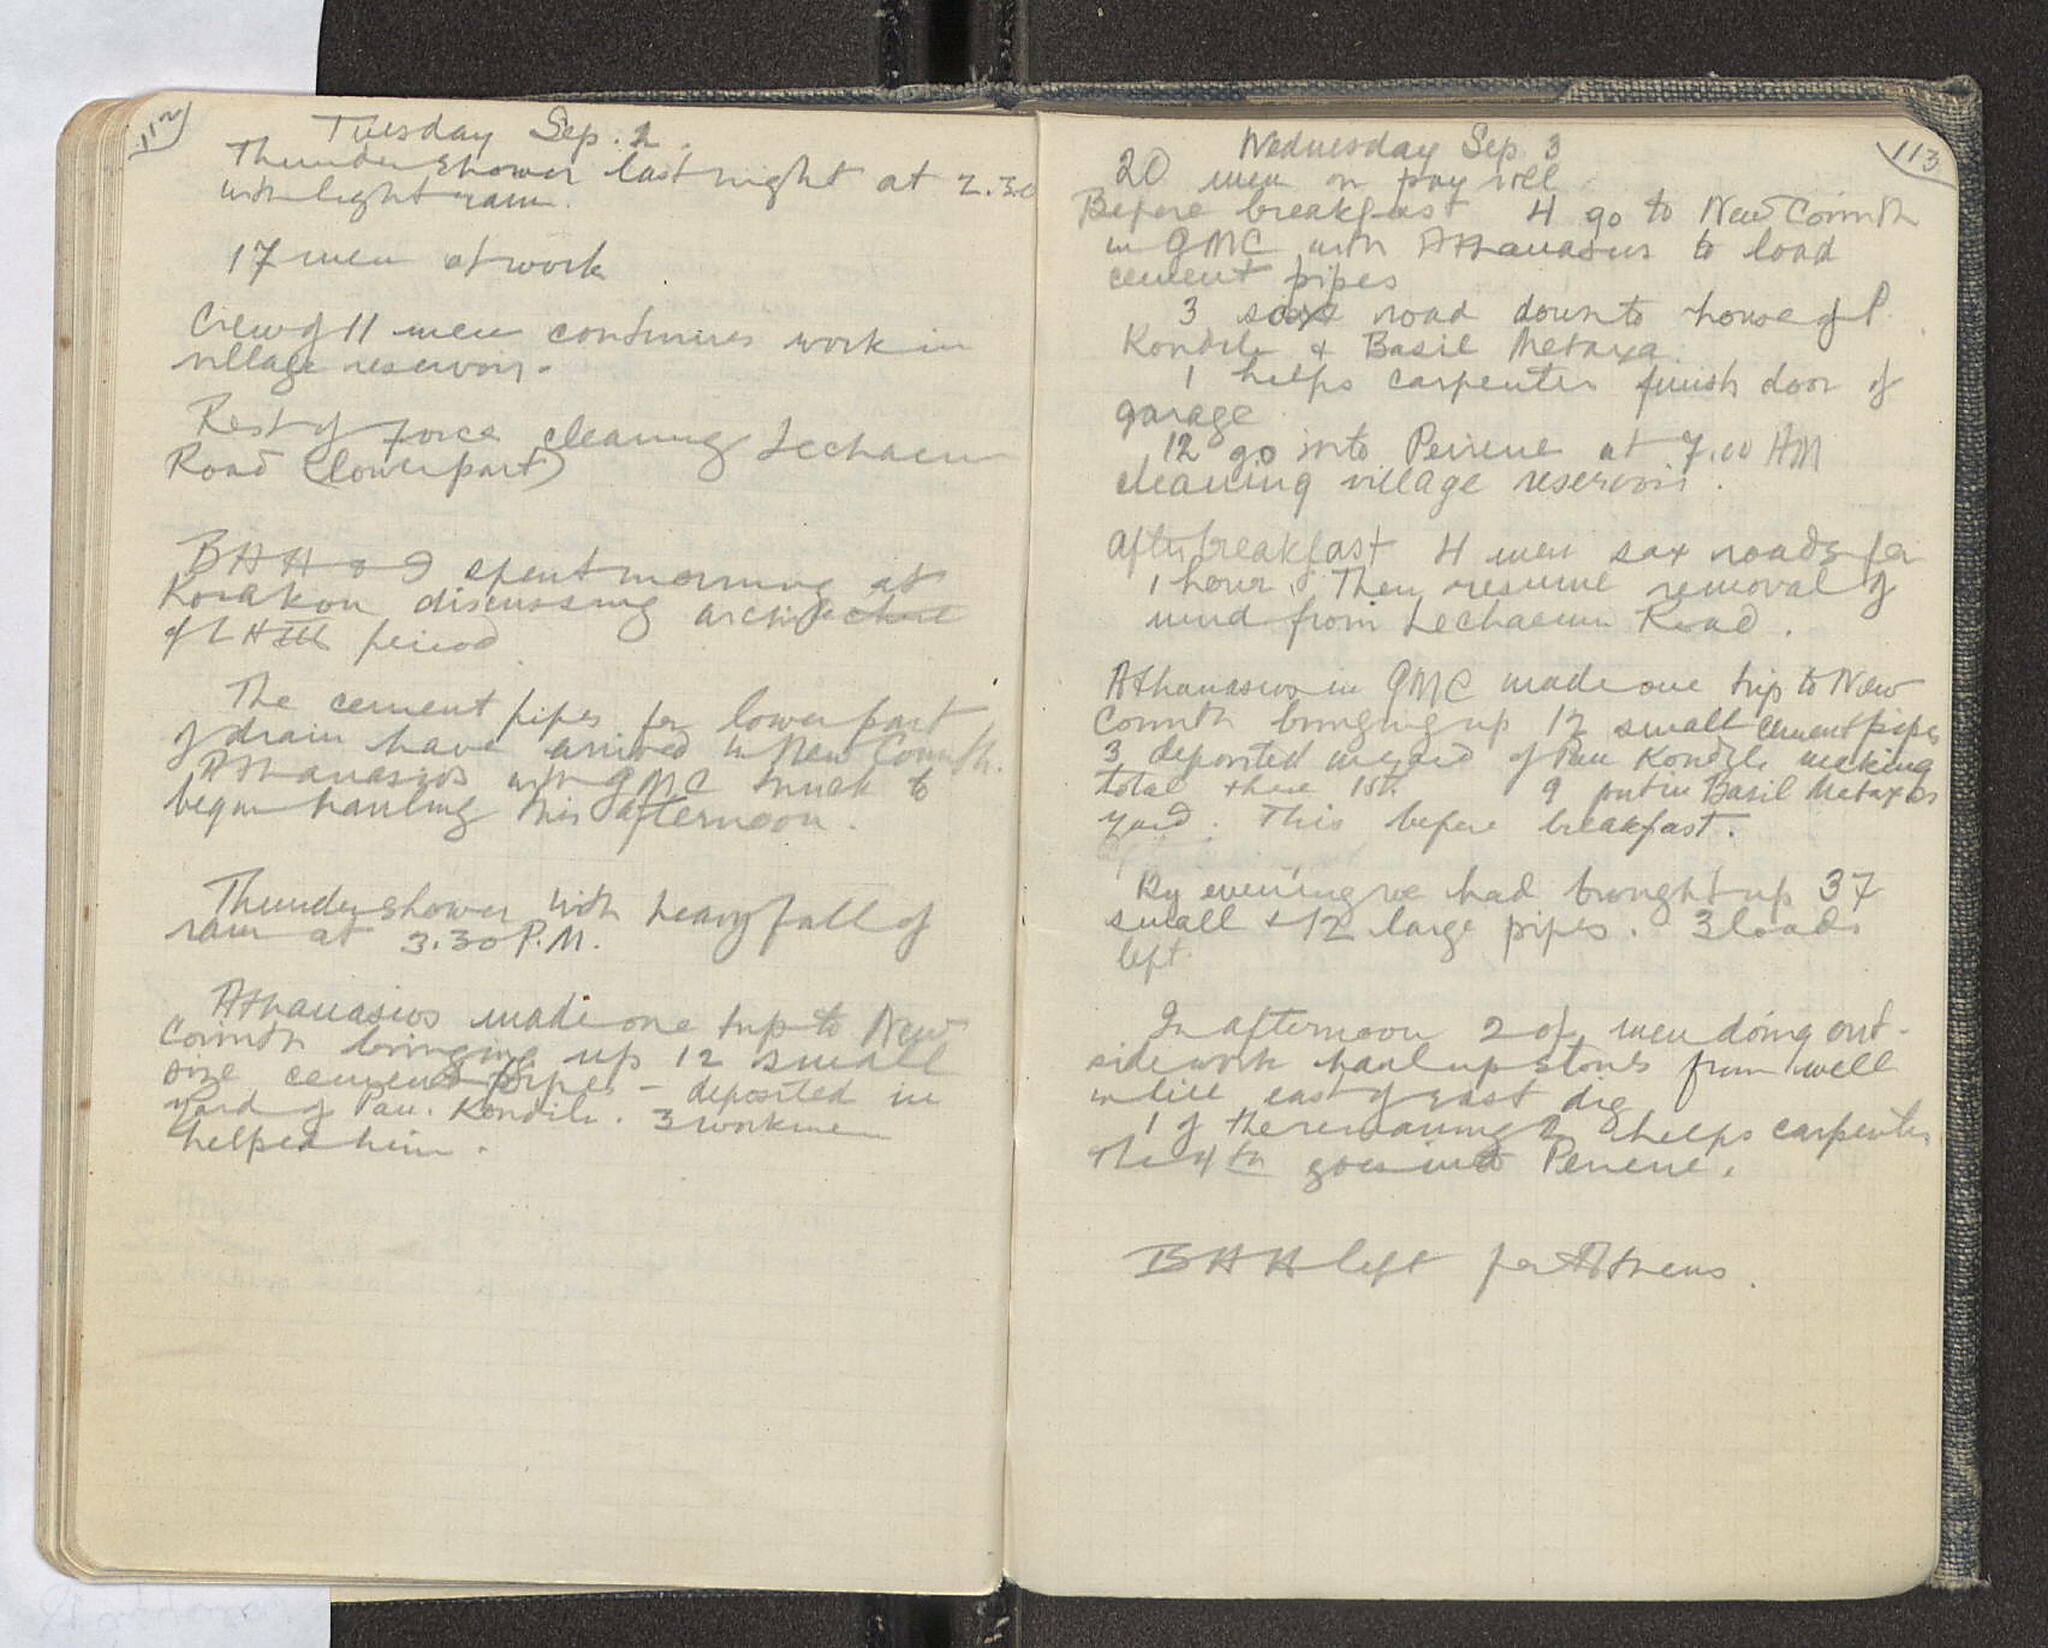 112
Tuesday Sep. 2.
Thunder shower last night at 2.30
with light rain.
17 men at work
Crew of 11 men continues work in
village reservoir.
Rest of force cleaning Lechaeum
Road (lower part)
BHH & I spent morning at
Korakou discussing architecture
of LH III period.
The cement pipes for lower part
of drain have arrived in New Corinth.
Athanasios with GMC truck to
begin hauling this afternoon.
Thunder shower with heavy fall of
rain at 3.30 P.M.
Athanasios made one trip to New
Corinth bringing up 12 small
size cement pipes - deposited in
yard of Pan. Kondili. 3 workmen
helped him.
113
Wednesday Sep 3
20 men on pay roll
Before breakfast 4 go to New Corinth
in GMC with Athanasius to load
cement pipes
3 sax road down to house of P.
Kondili & Basil Metaxa.
1 helps carpenter finish door of
garage
12 go into Peirene at 7.00 AM
cleaning village reservoir.
After breakfast 4 men sax roads for
1 hour. Then resume removal of
mud from Lechaeum Road.
Athanasios in GMC made one trip to New
Corinth bringing up 12 small cement pipes
3 deposited in yard of Pan Kondili making
total there 15. 9 put in Basil Metaxas
yard. This before breakfast.
By evening we had brought up 37
small & 12 large pipes. 3 loads
left.
In afternoon 2 of men doing out-
side work haul up stones from well
in hill east of east dig
1 of the remaining 2 helps carpenter
the 4th goes into Peirene.
BHH left for Athens.